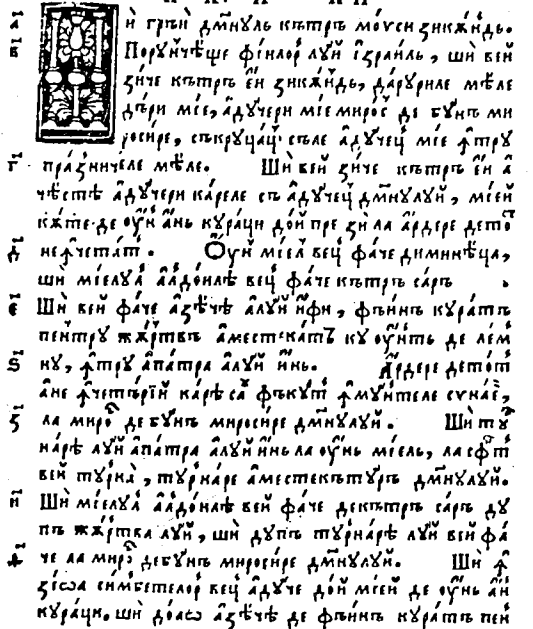 а҃ и҆ гръи дм҃нꙋль кѫтръ мѡѵси зикѫ́нд​ь.
в҃ Порꙋнчѣще фі́илор лꙋй І҆зраиль, ши вей
зиче кѫтръ е҆и зикѫ́ндь, дарꙋриле мѣле
дъри мїе, а҆дꙋчери мїе мирос де бꙋнъ ми
росире, съ крꙋцаць съле а҆дꙋчець мїе ꙟ҆трꙋ
г҃ празничеле мѣле. Ши вей зиче кѫтръ е҆и а҆
чѣстѣ а҆дꙋчери кареле съ а҆дꙋчець дм҃нꙋлꙋй, мїей
кѫте де оу҆н а҆нь кꙋраци дой пре зи ла а҆рдере детѡт
д҃ неꙟ҆четатъ. Оу҆н мїел вець фаче диминѣца,
ши мїелꙋл а҆лдойлѣ вець фаче кѫтръ саръ
є҃ Ши вей фаче а҆зѣчѣ а҆лꙋй и҆фи, фъинъ кꙋратъ
пентрꙋ жѫртвъ а҆местекатъ кꙋ оу҆нть де лем
ѕ҃ нꙋ, ꙟ҆трꙋ а҆патра а҆лꙋй и҆нь. А҆рдере детѡт
а҆не ꙟ҆четърїй карѣ са фъкꙋт ꙟ҆ мꙋнтеле синаѐ,
з҃ ла мирос де бꙋнъ миросире дм҃нꙋлꙋй. Ши тꙋр
нарѣ лꙋй а҆патра а҆лꙋй и҆нь ла оу҆нь мїель, ла сф҃т
вей тꙋрна, тꙋрнаре а҆местекътꙋръ дм҃нꙋлꙋй.
и҃ Ши мїелꙋл а҆лдойлѣ вей фаче декѫтръ саръ дꙋ
пъ жѫртва лꙋй, ши дꙋпъ тꙋрнарѣ лꙋй вей фа
ѳ҃ че ла мирос де бꙋнъ миросире дм҃нꙋлꙋй. Ши ꙟ҆
зїѡа симбетелор вець а҆дꙋче дой мїей де оу҆нь а҆н
кꙋраци. ши доаѡ а҆зѣчѣ де фъинъ кꙋратъ пен